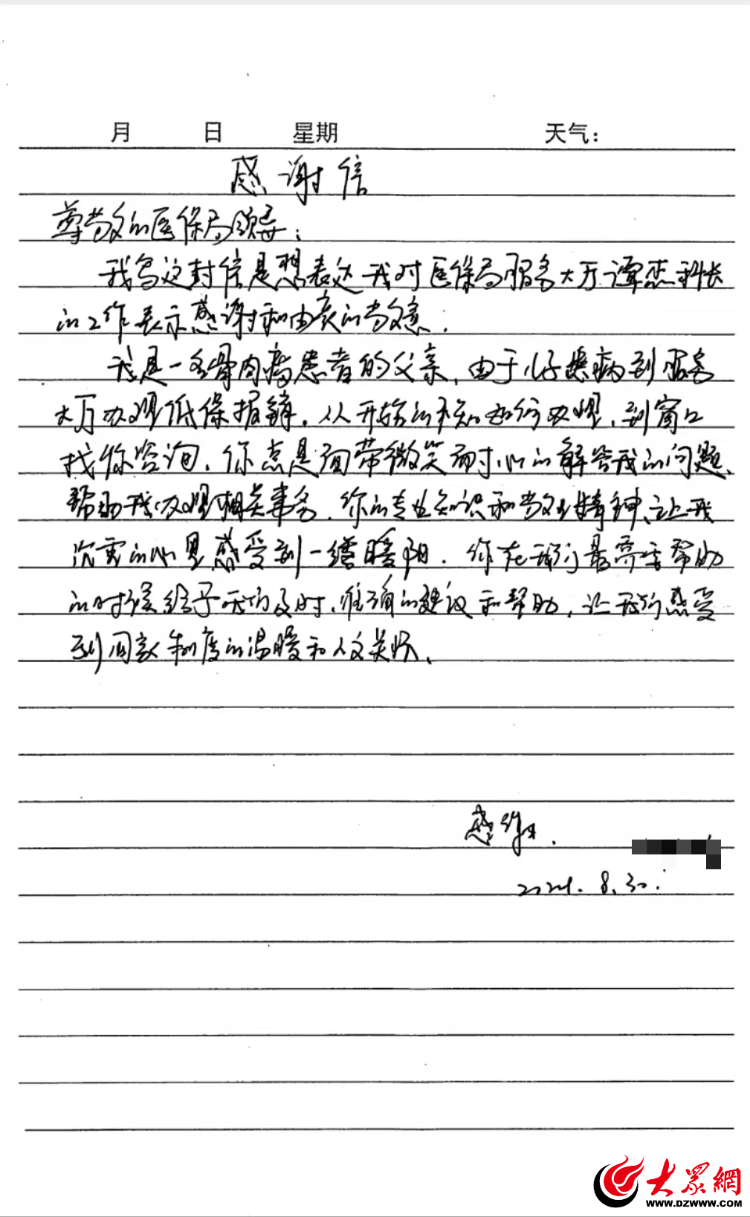 月 日 星期 天气:
感谢信
尊敬的医保局领导:
我写这封信是想表达我对医保局服务大厅谭杰科长
的工作表示感谢和由衷的敬意.
我是一名骨肉瘤患者的父亲,由于儿子患病到服务
大厅办理低保报销,从开始的不知如何办理,到窗口
找你咨询,你总是面带微笑耐心的解答我的问题、
帮助我办理相关事务.你的专业知识和敬业精神、让我
沉重的心里感受到一缕暖阳.你在我们最需要帮助
的时候给予我们及时、准确的建议和帮助,让我们感受
到国家制度的温暖和人文关怀、
感谢人.
2024.8.30.
大众網
WWW.DZWWW.COM